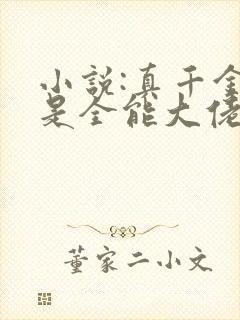 小説:真千金
是全能大佬
董家二小文